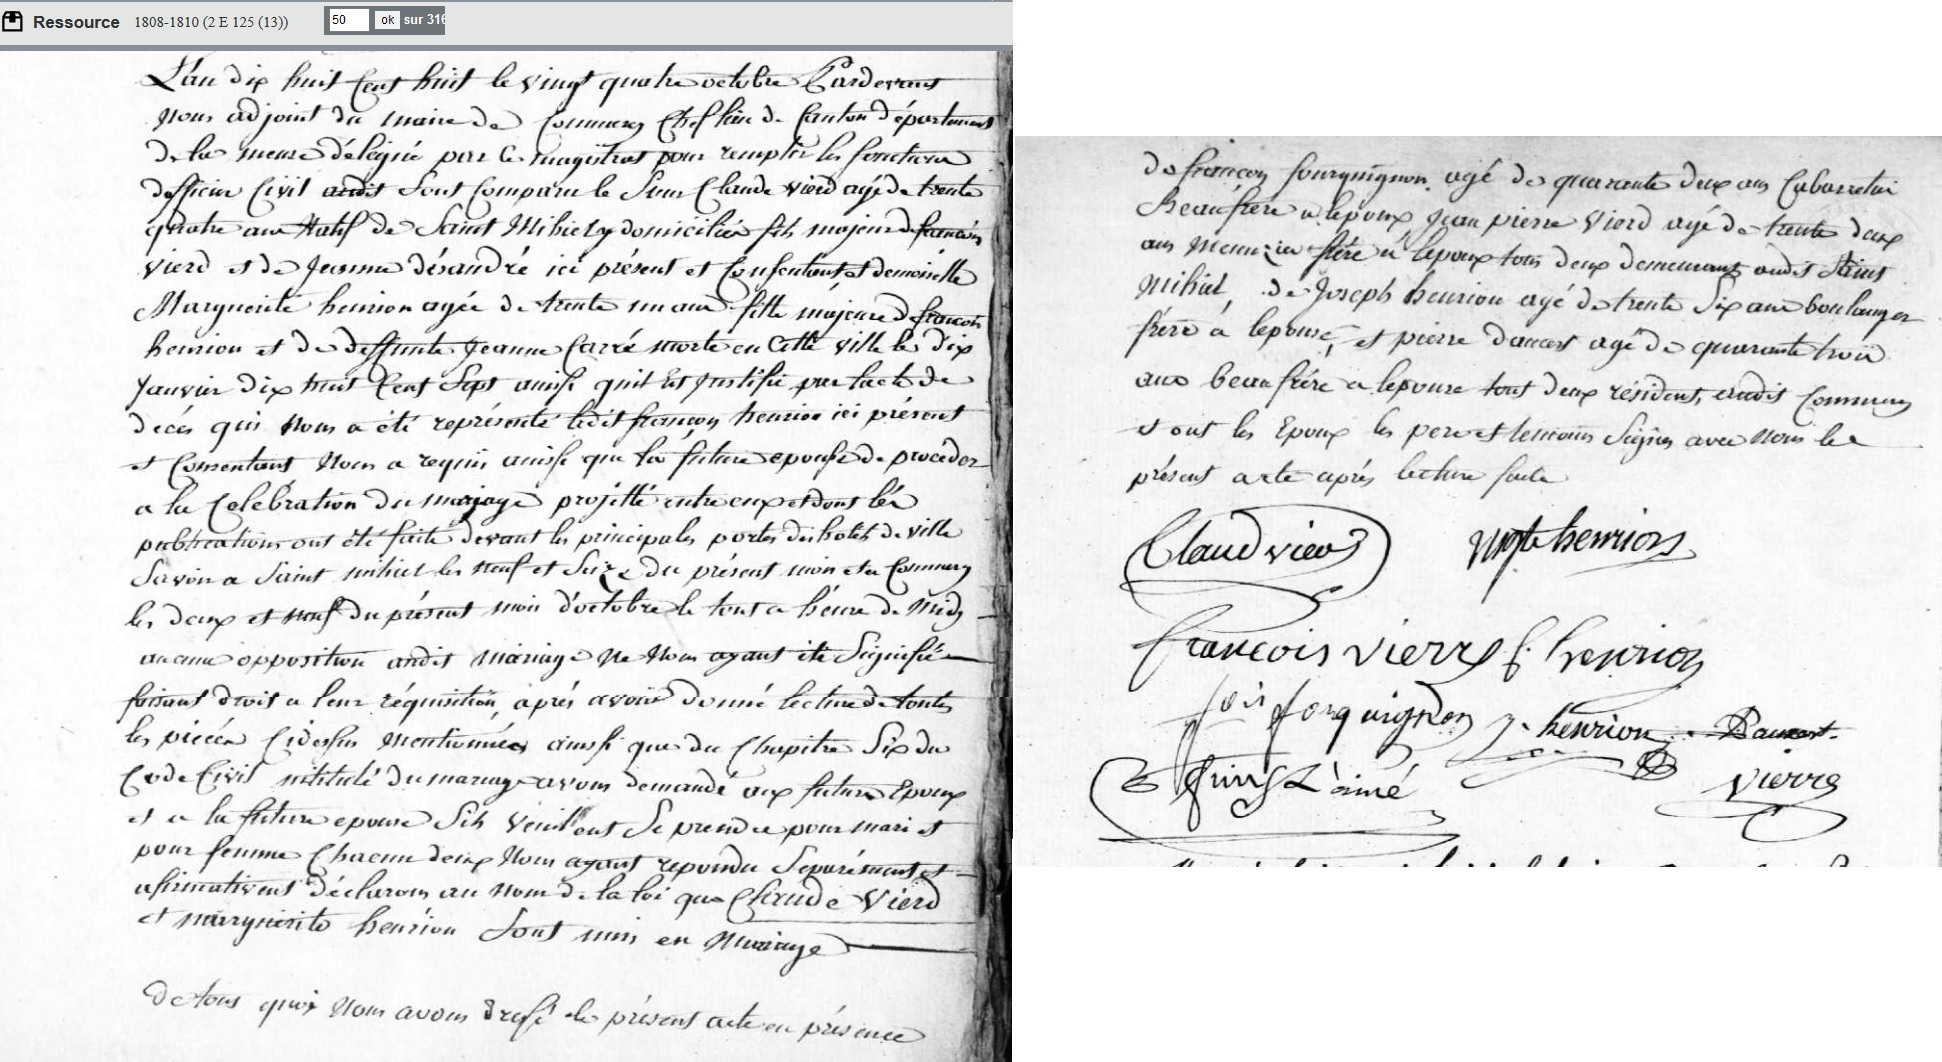 Ressource 1808-1810 (2 E 125 (13)) 50 ok sur 316
L'an dix huit Cent huit le vingt quatre octobre Pardevant
Nous adjoint du maire de Commercy Chef lieu de Canton département
de la meuse délégué par ce magistrat pour remplir les fonctions
dofficier Civil audit Sont Comparu le Sieur Claude vierd agé de trente
quatre ans Natif de Saint Mihiel y domicilié fils majeur de francois
vierd et de Jeanne désandré ici présent et Consentant et demoiselle
Marguerite henrion agée de trente un ans fille majeure de francois
henrion et de deffunte Jeanne Carré morte en Cette ville le dix
Janvier dix huit Cent Sept ainsi quil Est Justifié par lacte de
décés qui Nous a été représenté ledit françois henrion ici présent
et Consentant Nous a requis ainsi que la future epouse de procéder
a la Célébration du mariage projetté entre eux et dont les
publications ont été faite devant les principales portes des hotels de ville
Savoir a Saint mihiel les neuf et Seize du présent mois et a Commercy
les deux et neuf du présent mois d'octobre le tout a heure de Midy
aucune opposition audit mariage ne Nous ayant été Signifiée
faisant droit a leur réquisition, aprés avoir donné lecture de toutes
les piéces Cidessus mentionnées ainsi que du Chapitre Six du
Code Civil intitulé du mariage avons demandé aux future Epoux
et a la future epouse Sils veuillent Se prendre pour mari et
pour femme Chacun deux Nous ayant repondu Separément et
afirmativent déclarons au nom de la loi que Claude Vierd
et marguerite henrion Sont unis en Mariage
de tous quoi Nous avons dressé le présent acte en présence
de francois fourquignon agé de quarante deux ans Cabaretier
Beaufrére a lepoux Jean pierre vierd agé de trente deux
ans frére a lépoux tous deux demeurant audit Saint
Mihiel, de Joseph henrion agé de trente Six ans boulanger
frére a lepouse, et pierre dancart agé de quarante trois
ans beaufrére a lepouse tout deux résident audit Commercy
et ont les Epoux les pere et temoins Signés avec nous le
présent acte aprés lecture faite
Claud vierd Mgte henrion
francois vierrd f. henrion
fois forquignon J. henrion Dancart
L'ainé vierrd